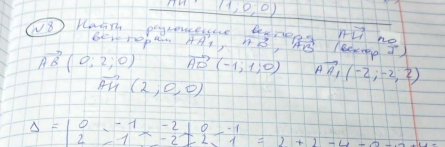 AH (1,0,0)
№8 Найти разложение вектора AH по
векторам AA₁, AD, AB (вектор
AB (0,2,0) AD (-1,1,0) AA₁ (-2,-2,2)
AH (2,0,0)
Δ = | 0 -1 -2 | 0 -1
2 1 -2 | 2 1 = 2+2-4-0-0+4=